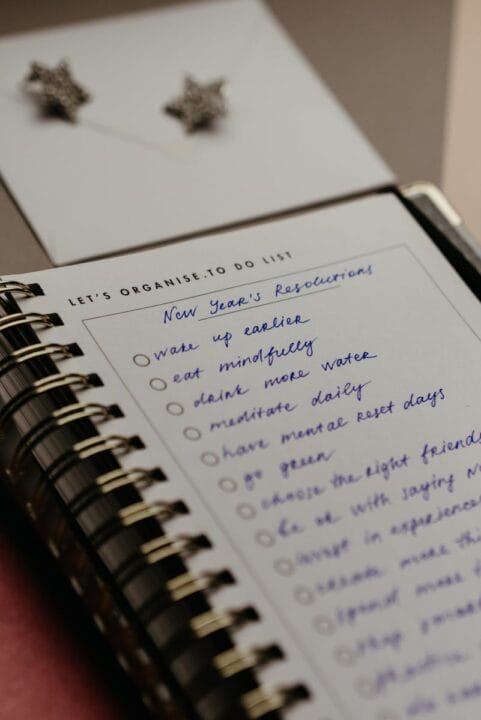 LET'S ORGANISE.TO DO LIST
New Year's Resolutions
wake up earlier
eat mindfully
drink more water
meditate daily
have mental reset days
go green
choose the right friends
be ok with saying
invest in experiences
create more
spend more
shop
practice